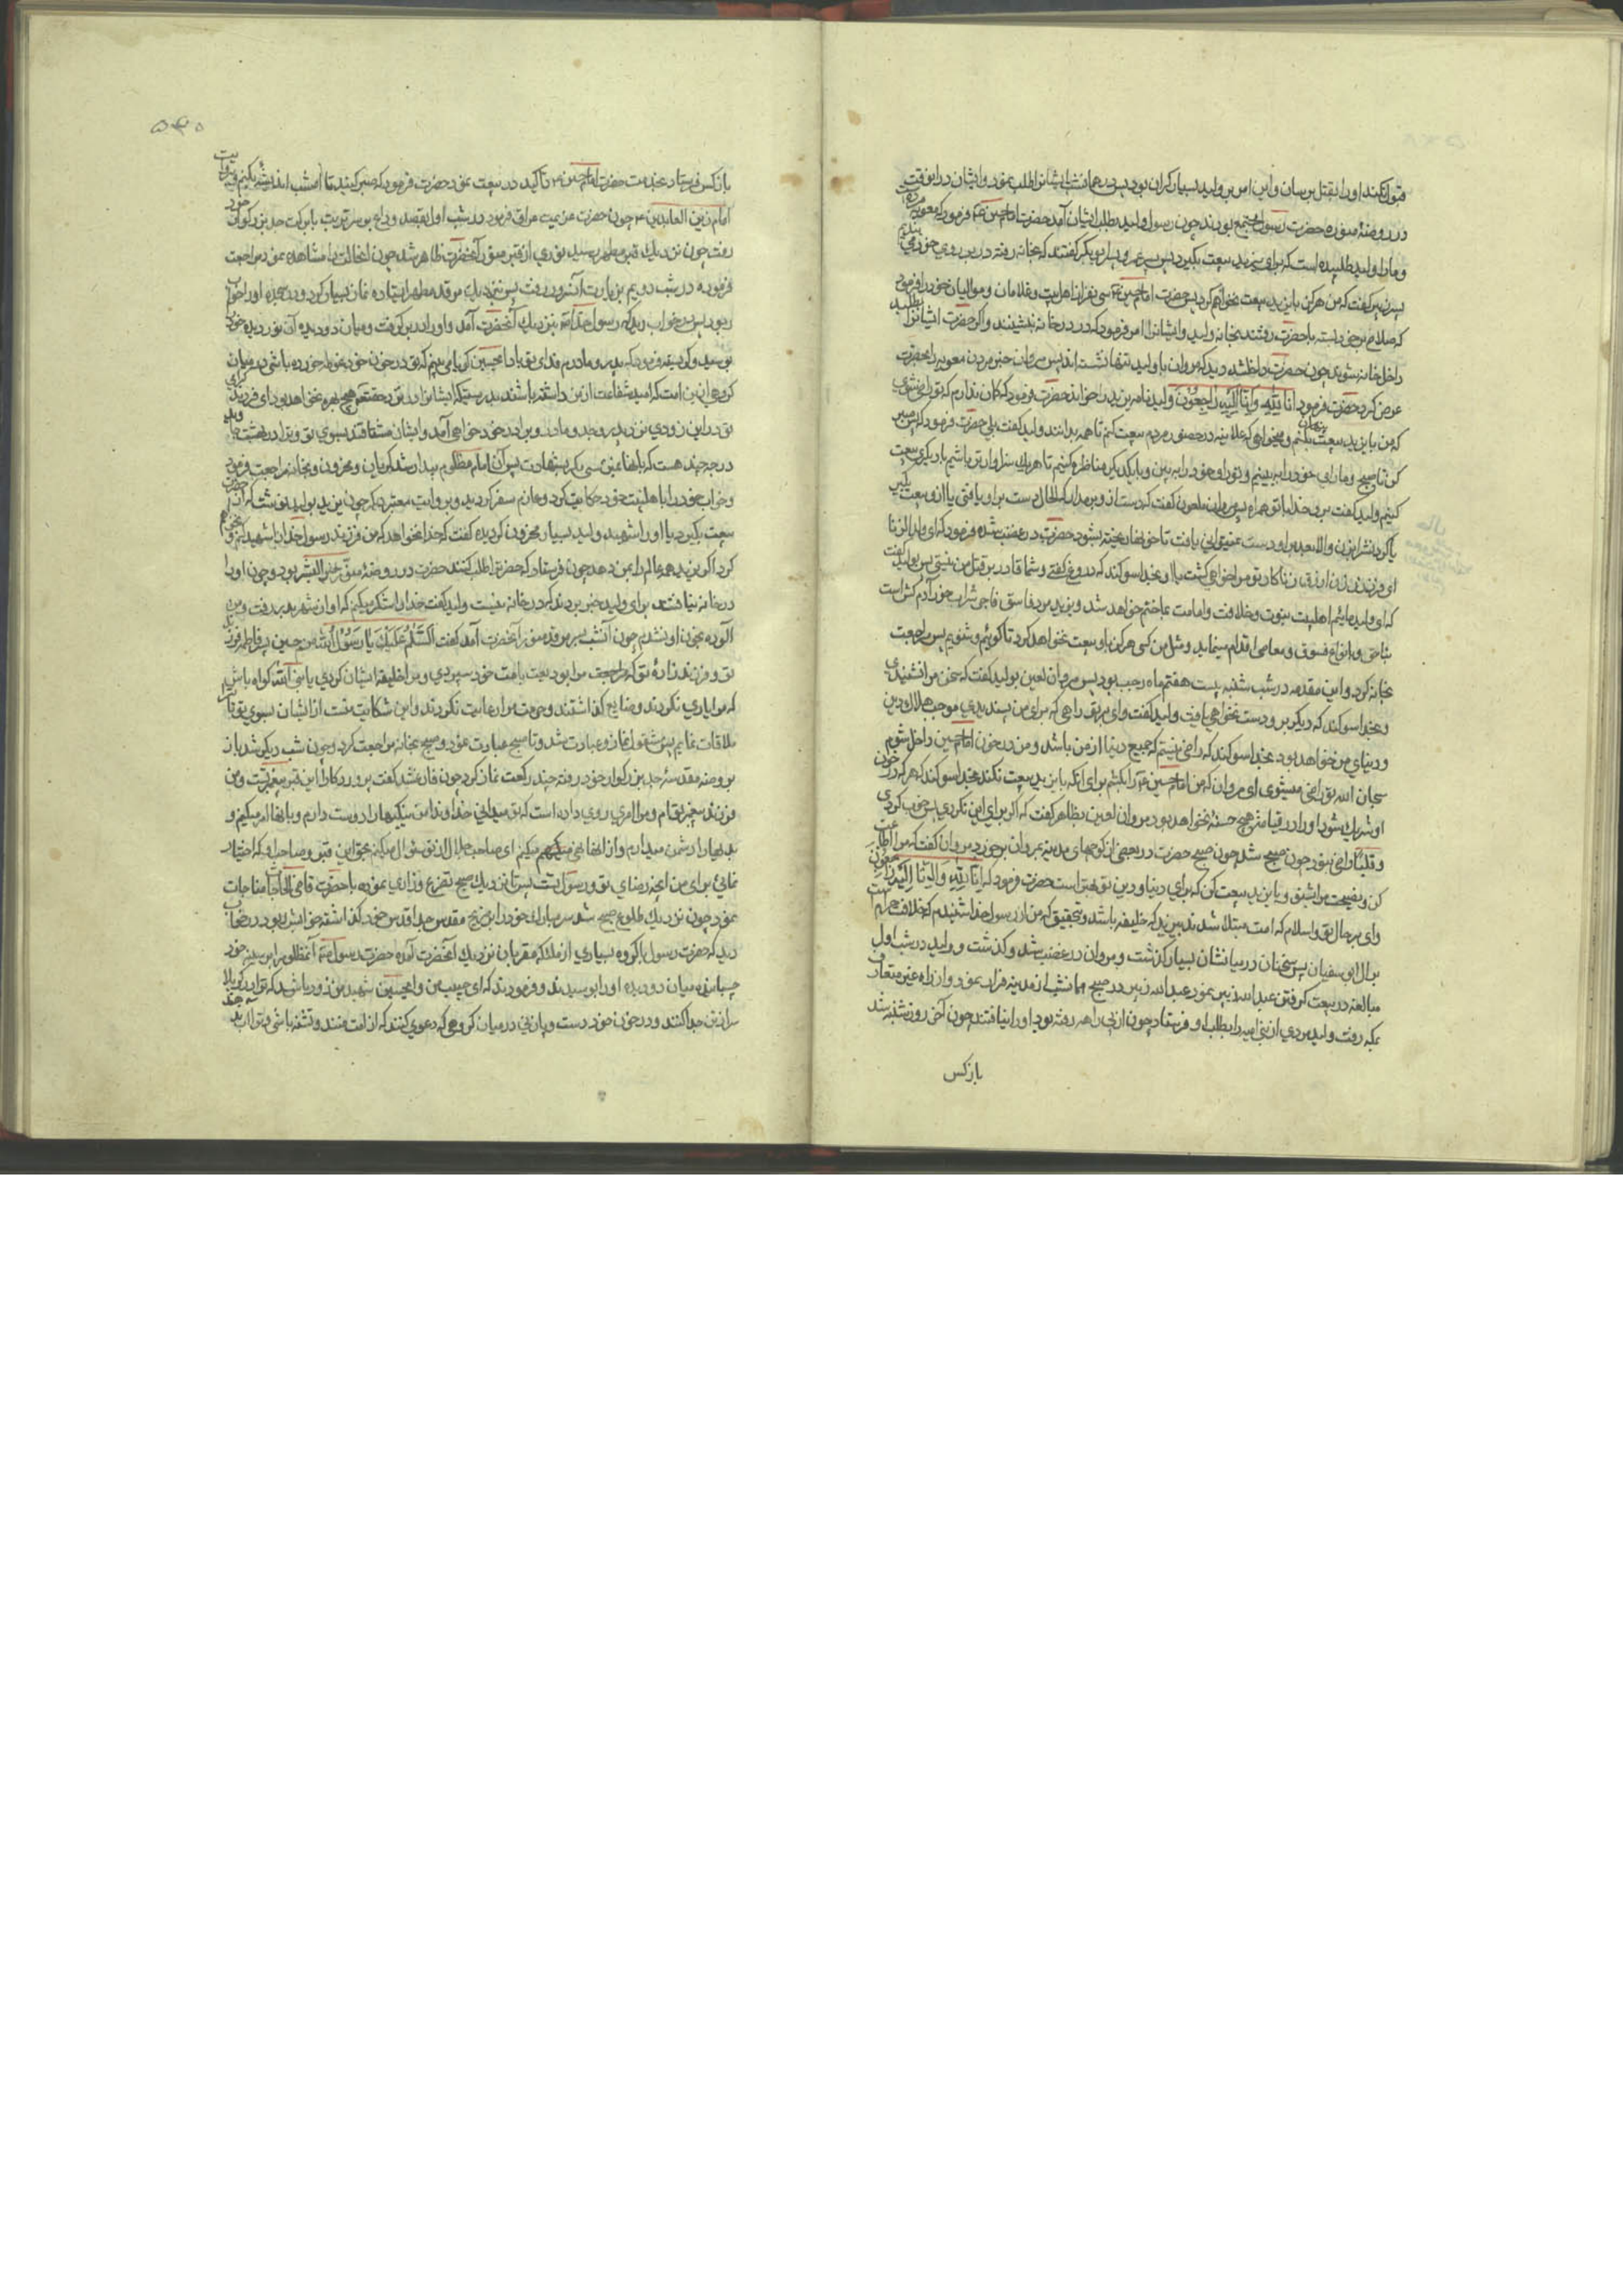 قبول نکند او را بقتل برسان و این امر بر ولید بسیار گران بود پس در همانشب ایشانرا طلب نمود و ایشان در اینوقت
در روضهٔ منوره حضرت رسول مجتمع بودند چون رسول ولید بطلب ایشان آمد حضرت امام حسین ع فرمود که معویه مرده است
و ما را ولید طلبیده است که برای یزید بیعت بگیرد پس پسر عمر و پسر ابو بکر گفتند که بخانه رفته در بر روی خود می بندیم
پسر زبیر گفت که من هرگز با یزید بیعت نخواهم کرد پس حضرت امام حسین ع سی نفر از اهلبیت و غلامان و موالیان خود را فرمود
که سلاح بر خود بسته با حضرت رفتند بخانه ولید و ایشانرا امر فرمود که در در خانه بنشینند و اگر حضرت ایشانرا بطلبد
داخل خانه شوند چون حضرت داخل شد دید که مروان با ولید تنها نشسته اند پس مروان خبر مردن معویه را بحضرت
عرض کرد حضرت فرمود انا لِلّهِ وَ اِنّا اِلَیْهِ رَاجِعُوْنَ ولید نامه یزید را خواند حضرت فرمود که گمان ندارم که تو راضی شوی
که من با یزید پنهان بیعت بکنم و میخواهی که علانیه در حضور مردم بیعت کنم تا همه بدانند ولید گفت بلی حضرت فرمود که پس صبر
کن تا صبح و ما رای خود را به بینیم و تو رای خود را به بین و با یکدیگر مناظره کنیم تا هر یک سزاوارتر باشیم با دیگری بیعت
کنیم ولید گفت برو بخدا با تو همراه پس مروان ملعون گفت که دست از او بر مدار که الحال دست بر او یافتی یا از او بیعت بگیر
یا گردنش را بزن والا بعد بر او دست نمیتوانی یافت تا خونها ریخته نشود حضرت در غضب شده فرمود که ای ولد الزنا
ای فرزند زن ازرق زناکار تو مرا خواهی کشت یا او بخدا سوگند که دروغ گفتی و شما قادر بر قتل من نیستی پس بولید گفت
که ای ولید مائیم اهلبیت نبوت و خلافت و امامت بما ختم خواهد شد و یزید مرد فاسق فاجر شراب خور آدم کش است
بناحق و بانواع فسوق و معاصی اقدام مینماید و مثل من کسی هرگز باو بیعت نخواهد کرد تا گوئیم و شنویم پس مراجعت
بخانه کرد و این مقدمه در شب شنبه بیست هفتم ماه رجب بود پس مروان لعین بولید گفت که سخن مرا نشنیدی
و بخدا سوگند که دیگر بر او دست نخواهی یافت ولید گفت وای بر تو راهی که برای من پسندیدی موجب هلاک دین
و دنیای من خواهد بود بخدا سوگند که راضی نیستم که جمیع دنیا از من باشد و من در خون امام حسین داخل شوم
سبحان الله تو راضی میشوی ای مروان که من امام حسین ع را بکشم برای آنکه با یزید بیعت نکند بخدا سوگند که هر که در خون
او شریک شود او را در قیامت هیچ حسنه نخواهد بود مروان لعین بظاهر گفت که اگر برای این نکردی پس خوب کردی
و قلبًا راضی نبود چون صبح شد چون صبح حضرت در بعضی از کوچهای مدینه بمروان بر خورد مروان گفت که مرا اطاعت
کن و نصیحت مرا بشنو و با یزید بیعت کن که برای دنیا و دین تو بهتر است حضرت فرمود که اِنّا لِلّهِ وَ اِنّا اِلَیْهِ رَاجِعُوْنَ
وای بر حال تو و اسلام که امت مبتلا شدند بیزید که خلیفه باشد و بتحقیق که من از رسولخدا شنیدم که خلافت حرام است
بر آل ابی سفیان پس سخنان در میانشان بسیار گذشت و مروان در غضب شد و گذشت و ولید در شب اول
مبالغه در بیعت گرفتن عبد الله زبیر نمود عبد الله زبیر در صبح همانشب از مدینه فرار نمود و از راه غیر متعارف
بمکه رفت ولید مردی از بنی امیه را بطلب او فرستاد چون از بی راهه رفته بود او را نیافتند چون آخر روز شنبه شد
باز کس
۵۴۰
باز کس فرستاد بخدمت حضرت امام حسین ع و تاکید در بیعت نمود حضرت فرمود که صبر کنید تا امشب اندیشه بکنیم بروایت
امام زین العابدین ع چون حضرت عزیمت عراق فرمود در شب اول بقصد وداع بر سر تربت با برکت جد بزرگوار خود
رفت چون نزدیک قبر مطهر رسید نوری از قبر منور آنحضرت ظاهر شد چون انحالت را مشاهده نمود مراجعت
فرمود و در شب دویم بزیارت آنسرور رفت پس نزدیک مرقد مطهر ایستاده نماز بسیار کرد و در سجده او را خواب
ربود پس در خواب دید که رسولخدا ص بنزدیک آنحضرت آمد و او را در بر گرفت و میان دو دیده آن نور دیده خود
بوسید و گریست و فرمود که پدر و مادرم فدای تو باد ایحسین گویا می بینم که تو در خون خود غوطه خورده باشی در میان
گروهی ازین امت که امید شفاعت از من داشته باشند بدرستیکه ایشانرا در نزد حقتعالی هیچ بهره نخواهد بود ای فرزند گرامی
تو در این زودی نزد پدر و جد و مادر و برادر خود خواهی آمد و ایشان مشتاقند بسوی تو و ترا در بهشت
درجه چند هست که بانها نمیرسی مگر بشهادت پس آن امام مظلوم بیدار شد گریان و محزون و بخانه مراجعت فرمود
و خواب خود را با اهلبیت خود حکایت کرد و عازم سفر گردید و بروایت معتبر دیگر چون یزید بولید نوشت که از آن حضرت
بیعت بگیرد یا او را شهید ولید بسیار محزون گردیده گفت که خدا نخواهد که من فرزند رسولخدا را شهید کنم و نخواهم
کرد اگر یزید همه عالم را بمن دهد چون فرستاد که حضرترا طلب کنند حضرت در روضهٔ منور خیر البشر بود و چون او را
در خانه نیافتند برای ولید خبر بردند که در خانه نیست ولید گفت خدا را شکر میکنم که او از شهر بدر رفت و من
آلوده بخون او نشدم چون آنشب بر سر مرقد منور آنحضرت آمد گفت اَلسَّلٰمُ عَلَیْكَ یَا رَسُوْلَ اللّٰهِ منم حسین پسر فاطمه فرزند
تو و فرزند زادهٔ تو که مرا بودیعت بامت خود سپردی و مرا خلیفه ایشان کردی یا نبی الله گواه باش بر ایشان
که مرا یاری نکردند و ضایع گذاشتند و حرمت مرا رعایت نکردند و این شکایت منست از ایشان بسوی تو تا
ملاقات نمایم پس مشغول نماز و عبادت شد و تا صبح عبادت نمود و صبح بخانه مراجعت کرد و چون شب دیگر شد باز
بروضه مقدسهٔ جد بزرگوار خود رفته چند رکعت نماز کرد چون فارغ شد گفت پروردگارا این قبر پیغمبر تست و من
فرزند پیغمبر توام و مرا امری روی داده است که تو میدانی خداوندا من نیکیها را دوست دارم و بانها امر میکنم و
بدیها را دشمن میدارم و از انها نهی میکنم ای صاحب جلال از تو سؤال میکنم بحق این قبر و صاحب او که اختیار
نمائی برای من آنچه رضای تو و رسول تست پس تا نزدیک صبح تضرع و زاری نموده با حضرت قاضی الحاجات مناجات
نمود چون نزدیک طلوع صبح شد سر مبارک خود را بر ضریح مقدس جد اقدس خود گذاشته خوابش ربود در خواب
دید که حضرت رسول با گروه بسیاری از ملائکه مقربان نزدیک آنحضرت آمده حضرت رسول ص آنمظلوم را بر سینه خود
چسبانیده میان دو دیده او را بوسیدند و فرمودند که ای حبیب من وایحسین شهید من زود باشد که ترا در کربلا
سر از تن جدا کنند و در خون خود دست و پا زنی در میان گروهی که دعوی کنند که از امت منند و تشنه باشی و ترا آب ندهند